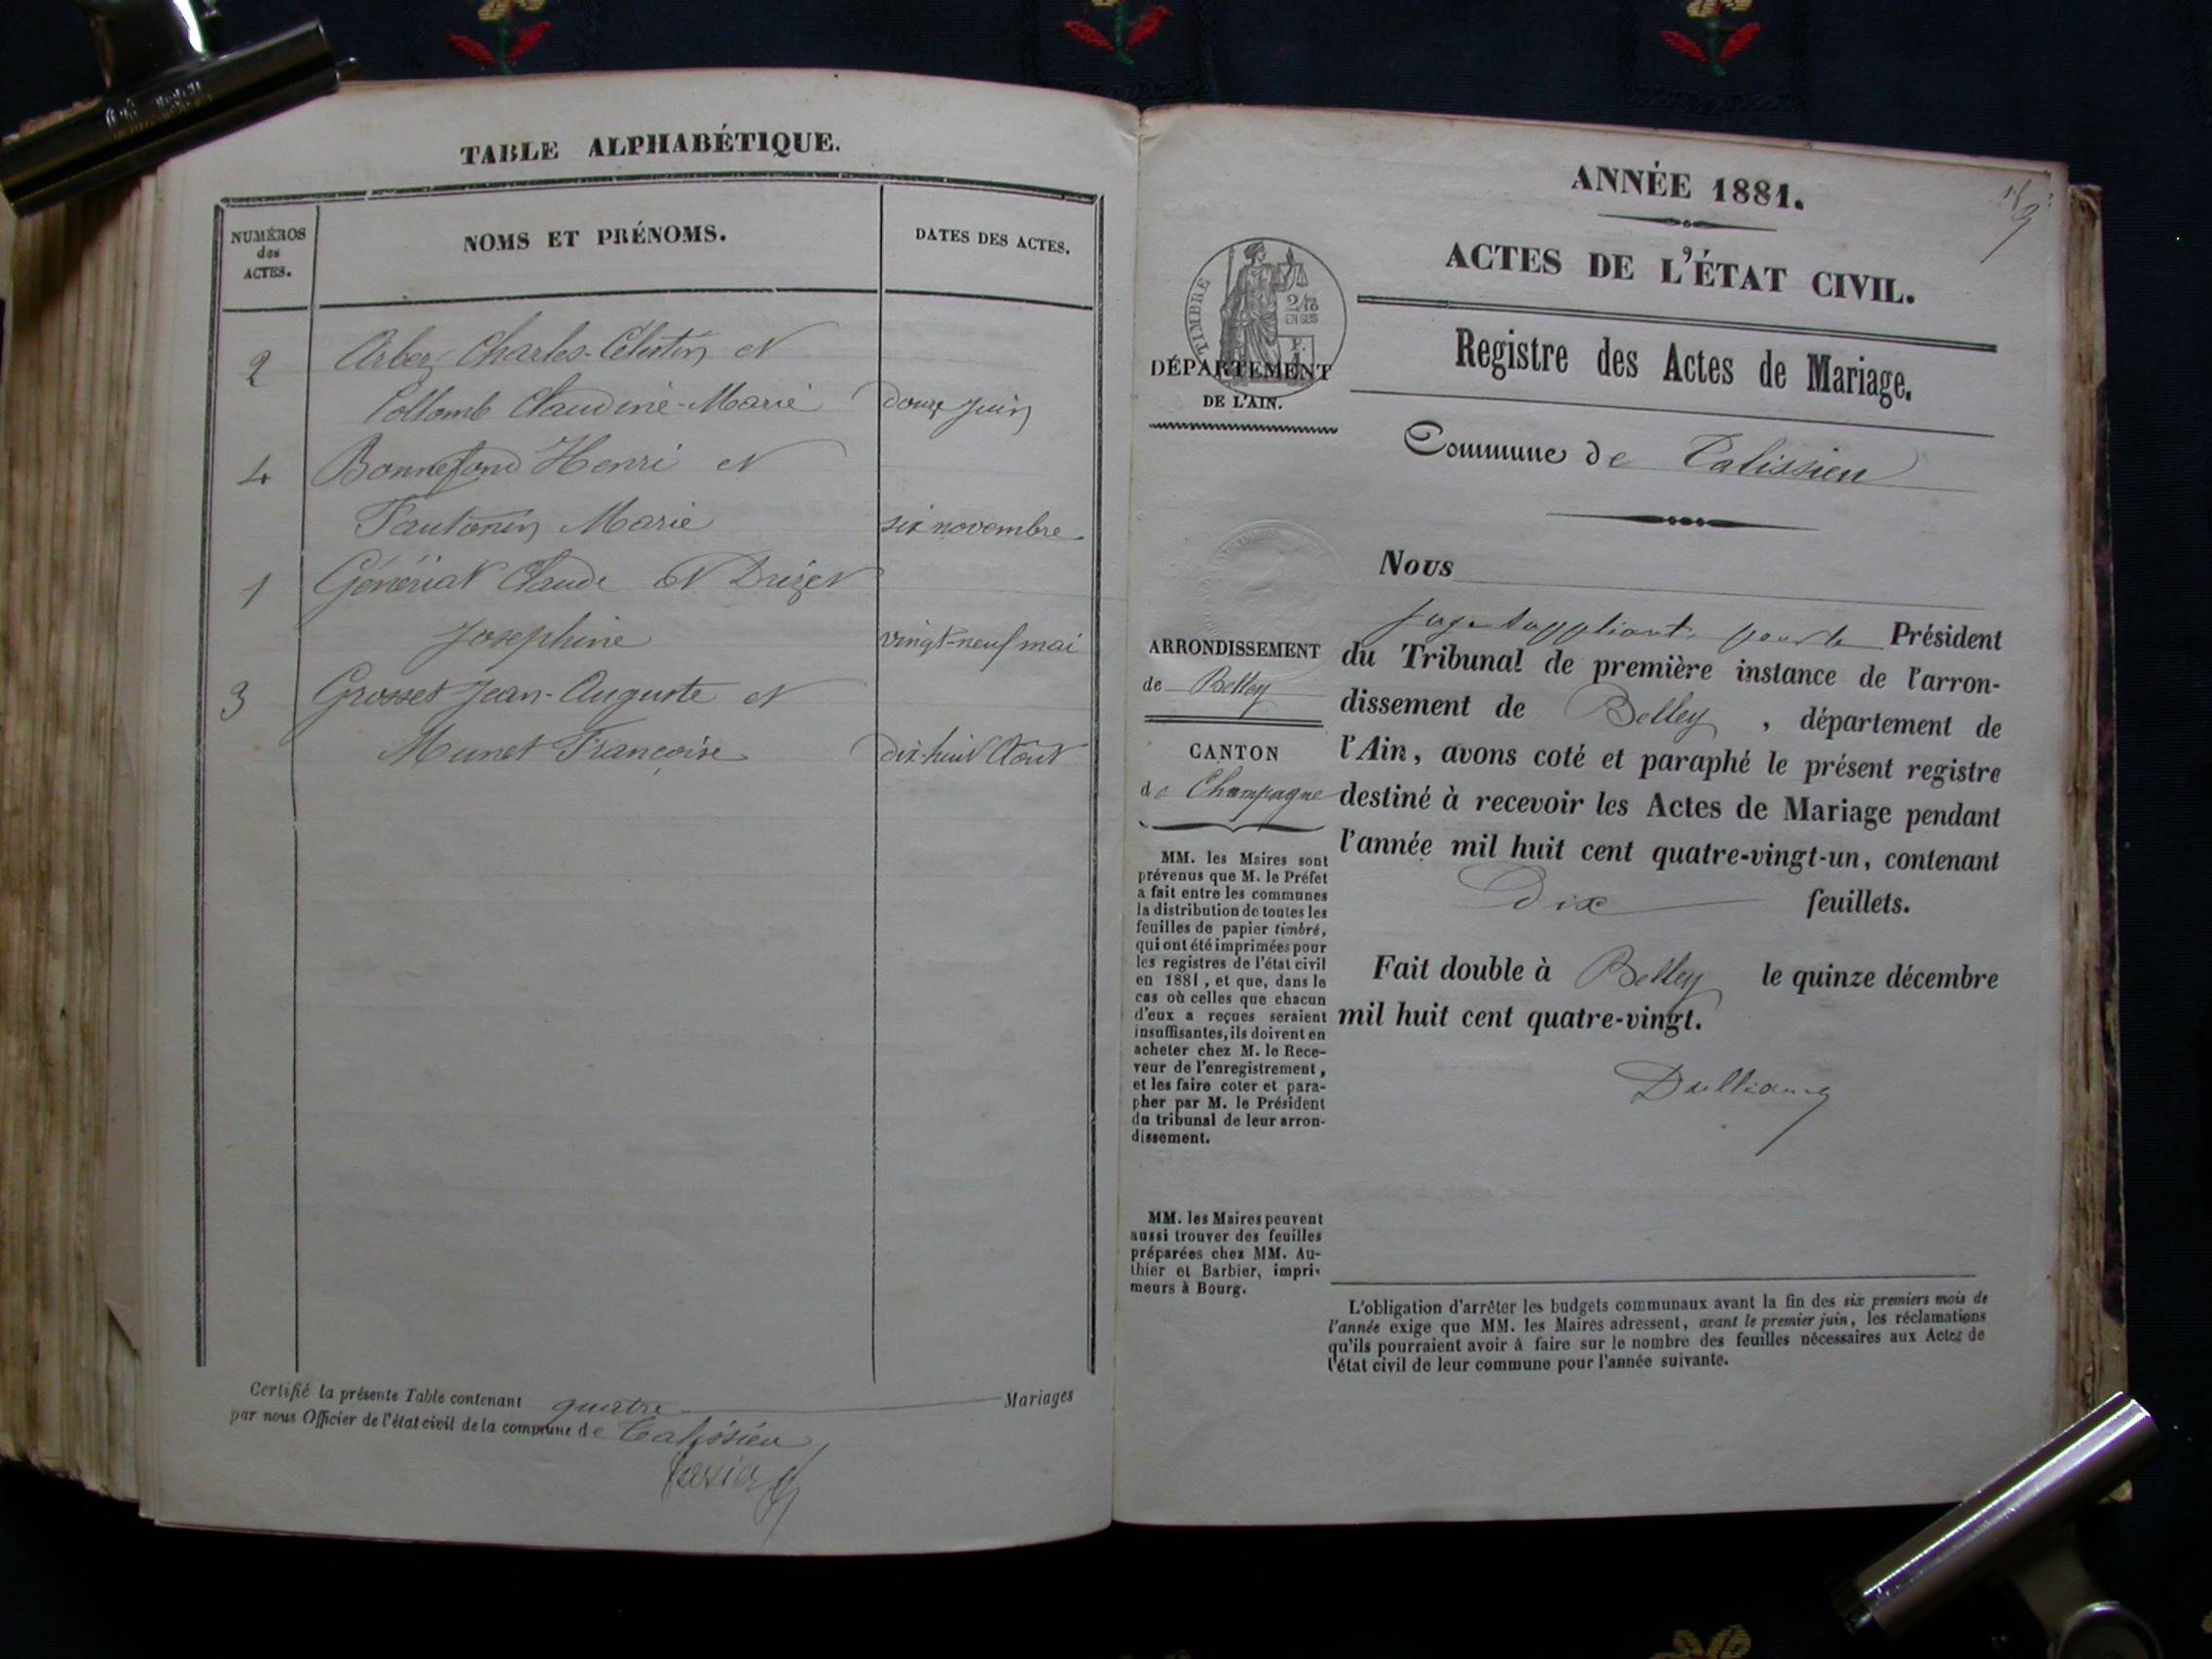 TABLE ALPHABÉTIQUE.
NUMÉROS
des
ACTES.
NOMS ET PRÉNOMS.
DATES DES ACTES.
2 Arbez Charles-Célestin et
Collomb Claudine-Marie douze Juin
4 Bonnefond Henri et
Tantonin Marie six novembre
1 Génériat Claude et Drizet
Josephine vingt-neuf mai
3 Grosset Jean-Auguste et
Munet Françoise dix-huit Août
Certifié la présente Table contenant quatre Mariages
par nous Officier de l'état civil de la commune de Talissieu
ANNÉE 1881.
ACTES DE L'ÉTAT CIVIL.
Registre des Actes de Mariage.
Commune de Talissieu
TIMBRE
2/10
EN SUS
DÉPARTEMENT
DE L'AIN.
ARRONDISSEMENT
de Belley
CANTON
de Champagne
MM. les Maires sont
prévenus que M. le Préfet
a fait entre les communes
la distribution de toutes les
feuilles de papier timbré,
qui ont été imprimées pour
les registres de l'état civil
en 1881, et que, dans le
cas où celles que chacun
d'eux a reçues seraient
insuffisantes, ils doivent en
acheter chez M. le Rece-
veur de l'enregistrement,
et les faire coter et para-
pher par M. le Président
du tribunal de leur arron-
dissement.
MM. les Maires peuvent
aussi trouver des feuilles
préparées chez MM. Au-
thier et Barbier, impri-
meurs à Bourg.
Nous
juge suppléant pour le Président
du Tribunal de première instance de l'arron-
dissement de Belley, département de
l'Ain, avons coté et paraphé le présent registre
destiné à recevoir les Actes de Mariage pendant
l'année mil huit cent quatre-vingt-un, contenant
Dix feuillets.
Fait double à Belley le quinze décembre
mil huit cent quatre-vingt.
L'obligation d'arrêter les budgets communaux avant la fin des six premiers mois de
l'année exige que MM. les Maires adressent, avant le premier juin, les réclamations
qu'ils pourraient avoir à faire sur le nombre des feuilles nécessaires aux Actes de
l'état civil de leur commune pour l'année suivante.